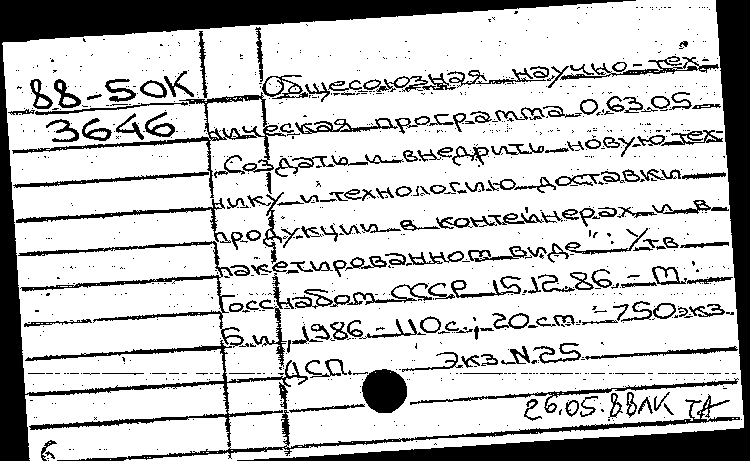 88-50К
3646
Общесоюзная научно-тех-
ническая программа 0.63.05
„Создать и внедрить новую тех-
нику и технологию доставки
продукции в контейнерах и в
пакетированном виде": Утв.
Госснабом СССР 15.12.86. - М.:
Б.и., 1986. - 110с.; 20см. - 750экз.
ДСП. Экз.N.25
26.05.88ЛК ТА
6